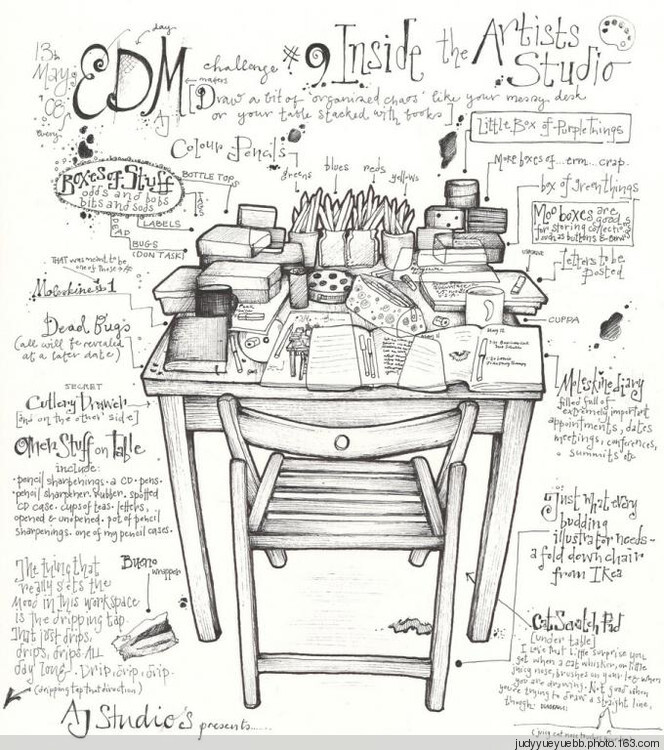 13th
May
08
day
EDM
challenge #9 Inside the Artists
Studio
makers
AJ
Draw a bit of 'organised chaos' like your messy desk
or your table stacked with books
Little Box of Purple Things
Colour Pencils
greens
blues
reds
yellows
More boxes of... erm... crap.
Boxes of Stuff
odds and bobs
bits and sods
BOTTLE TOPS
TAGS
LABELS
DEAD
BUGS
(DON'T ASK)
box of green things
Moo boxes are
good
for storing collections
such as buttons & bows
letters to be
posted
THAT was meant to be
one of those → AJ
Moleskine #1
Dead Bugs
(all will be revealed
at a later date)
CUPPA
May 12
SECRET
Cutlery Drawer
[and on the other side]
Moleskine diary
filled full of
extremely important
appointments, dates
meetings, conferences,
summits etc
Other Stuff on Table
include:
·pencil sharpenings· a CD· pens·
·pencil sharpener· rubber· spotted
CD case· cups of teas· letters,
opened & unopened· pot of pencil
sharpenings· one of my pencil cases·
Just what every
budding
illustrator needs-
a fold down chair
from Ikea
The thing that
really sets the
mood in this workspace
is the dripping tap.
That just drips,
drips, drips ALL
day long. Drip, drip, drip.
(dripping tap that direction)
Bueno
wrapper
Cat Scratch Pad
(under table)
I love that little surprise you
get when a cat whisker, or little
spicy nose, brushes on your leg when
you are drawing. Not good when
you're trying to draw a straight line,
though
AJ Studio's presents......
judyyueyuebb.photo.163.com